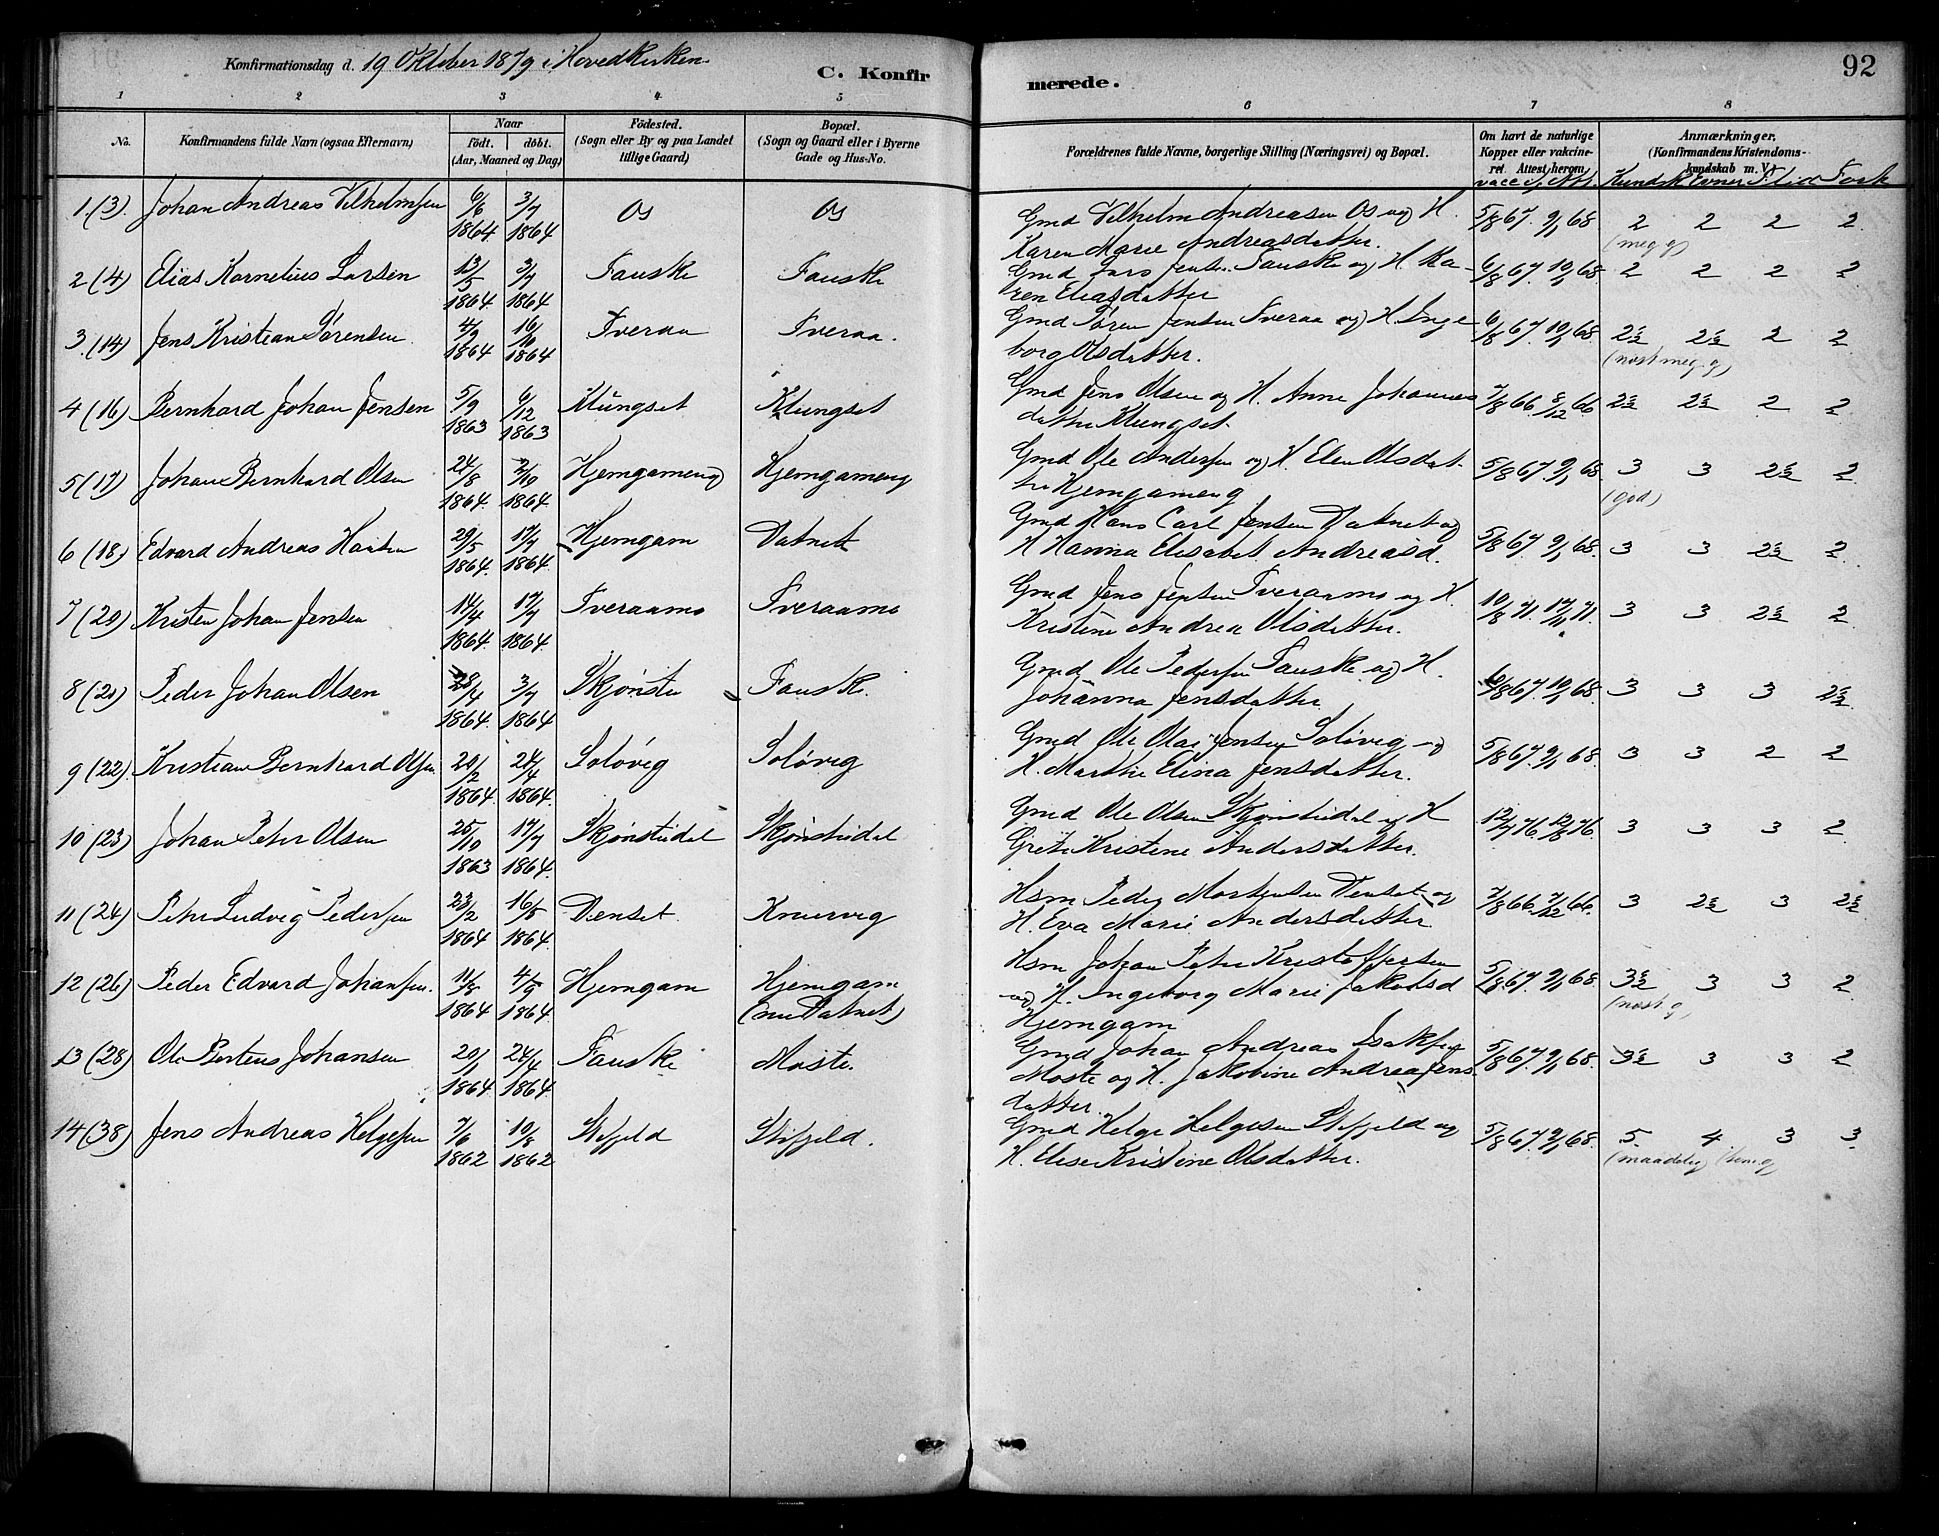 Konfirmationsdag d. 19 Oktober 1879 i Hovedkirken.
C. Konfirmerede.
92
1 2 3 4 5 6 7 8
No.
Konfirmandens fulde Navn (ogsaa Efternavn)
Naar
födt. döbt.
(Aar, Maaned og Dag)
Födested.
(Sogn eller By og paa Landet
tillige Gaard)
Bopæl.
(Sogn og Gaard eller i Byerne
Gade og Hus-No.
Forældrenes fulde Navne, borgerlige Stilling (Næringsvei) og Bopæl.
Om havt de naturlige
Kopper eller vakcine-
ret. Attest herom.
vacc. Att.
Anmærkninger.
(Konfirmandens Kristendoms-
kundskab m. V.)
Kundsk Evner Flid Forh
1. (3). Johan Andreas Vilhelmsen 6/6 1864 3/7 1864 Os Os Gmd Vilhelm Andreasen Os og H. 5/8 67. 9/1 68. 2 2 2 2
Karen Marie Andreasdatter. (meg g)
2 (4) Elias Kornelius Larsen 13/5 1864 3/7 1864 Fauske Fauske Gmd Lars Jensen Fauske og H. Ka- 6/8 67. 10/1 68. 2 2 2 2
ren Eliasdatter
3. (14) Jens Kristian Sørensen. 4/9 1864 16/10 1864 Tveraa Tveraa. Gmd Søren Jensen Tveraa og H. Inge 6/8 67. 10/1 68. 2½ 2½ 2 2
borg Olsdatter. (næst meg. g)
4 (16) Bernhard Johan Jensen 5/9 1863 6/12 1863 Klungset Klungset Gmd Jens Olsen og H. Anne Johannes 7/8 66. 8/12 66 2½ 2½ 2 2
datter Klungset.
5 (17) Johan Bernhard Olsen 24/8 1864. 2/10 1864 Hjemgameng Hjemgameng Gmd Ole Andersen og H. Elen Olsdat- 5/8 67. 9/1 68. 3 3 2½ 2
ter Hjemgameng (god)
6 (18) Edvard Andreas Hansen 29/5 1864. 17/7 1864. Hjemgam Vatnet Gmd Hans Carl Jensen Vatnet og 5/8 67. 9/1 68. 3 3 2½ 2
H Hanna Elisabet Andreasd.
7 (20) Kristen Johan Jensen 14/4 1864. 17/7 1864. Tveraamo Tveraamo Gmd Jens Jensen Tveraamo og H. 10/8 71. 17/11 71. 3 3 2½ 2
Kristine Andrea Olsdatter.
8 (21) Peder Johan Olsen 28/4 1864. 3/7 1864. Skjønstu Fauske. Gmd Ole Pedersen Fauske og H. 6/8 67. 10/1 68. 3 3 3 2½
Johanna Jensdatter
9 (22) Kristian Bernhard Olsen 20/2 1864 24/4 1864. Soløvig Soløvig Gmd Ole Olai Jensen Soløvig og 5/8 67. 9/1 68. 3 3 2 2
H. Marthe Elina Jensdatter.
10 (23) Johan Peter Olsen 25/10 1863 17/7 1864. Skjønstudal Skjønstudal Gmd Ole Olsen Skjønstudal og H 12/7 76. 12/8 76. 3 3 3 2
Grete Kristine Andersdatter.
11 (24) Peter Ludvig Pedersen 23/2 1864 16/5 1864. Venset. Knærvig Hsm Peder Mortensen Venset og 7/8 66. 7/12 66. 3 2½ 3 2½
H. Eva Marie Andersdatter
12 (26) Peder Edvard Johansen. 11/8 1864 4/9 1864 Hjemgam Hjemgam Hsm Johan Peter Kristoffersen 5/8 67. 9/1 68. 3½ 3 3 2
(nu Vatnet) og H. Ingeborg Marie Jakobsd (næst g)
Hjemgam
13 (28) Ole Berteus Johansen 20/1 1864 24/4 1864 Fauske Moste. Gmd Johan Andreas Isaksen 5/8 67. 9/1 68. 3½ 3 3 2
Moste og H. Jakobine Andrea Jens
datter.
14 (38) Jens Andreas Helgesen 7/6 1862 10/8 1862 Stifjeld Stifjeld. Gmd Helge Helgesen Stifjeld og 5/8 67. 9/1 68. 5. 4 3 3
H. Elise Kristine Olsdatter. (maadelig) (tem g)